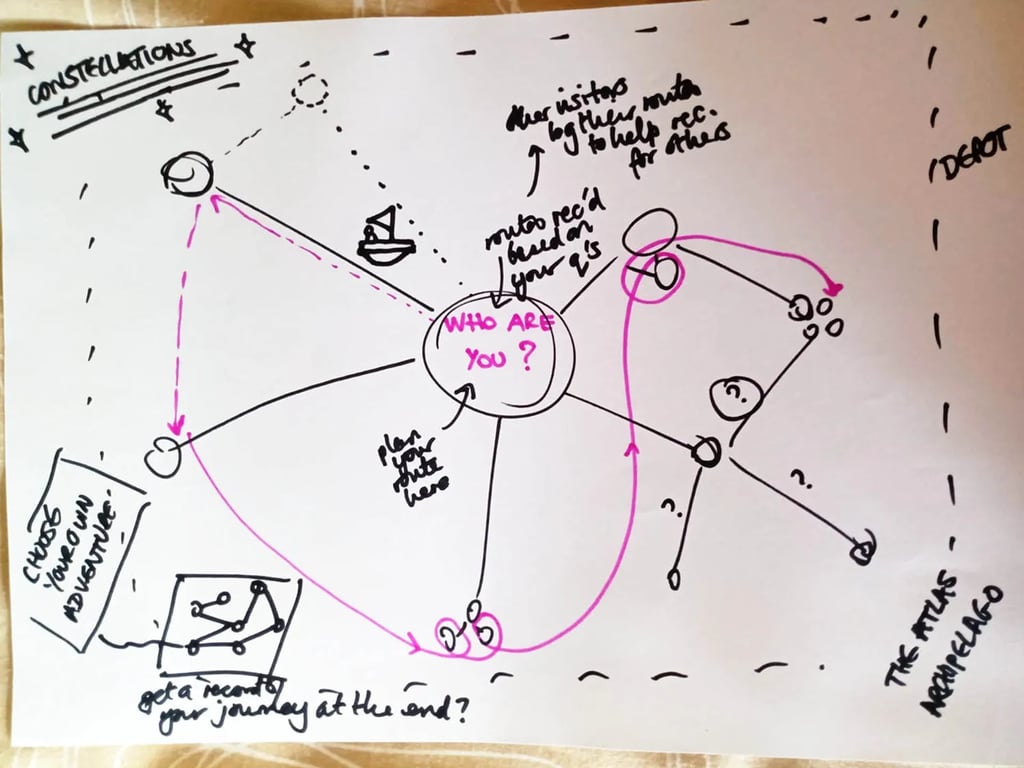 CONSTELLATIONS
other visitors
log their routes
to help rec.
for others
DEPOT
routes rec'd
based on
your q's
WHO ARE
YOU?
plan
your
route
here
?
?
?
CHOOSE
YOUR OWN
ADVENTURE-
get a record of
your journey at the end?
THE ATLAS
ARCHIPELAGO